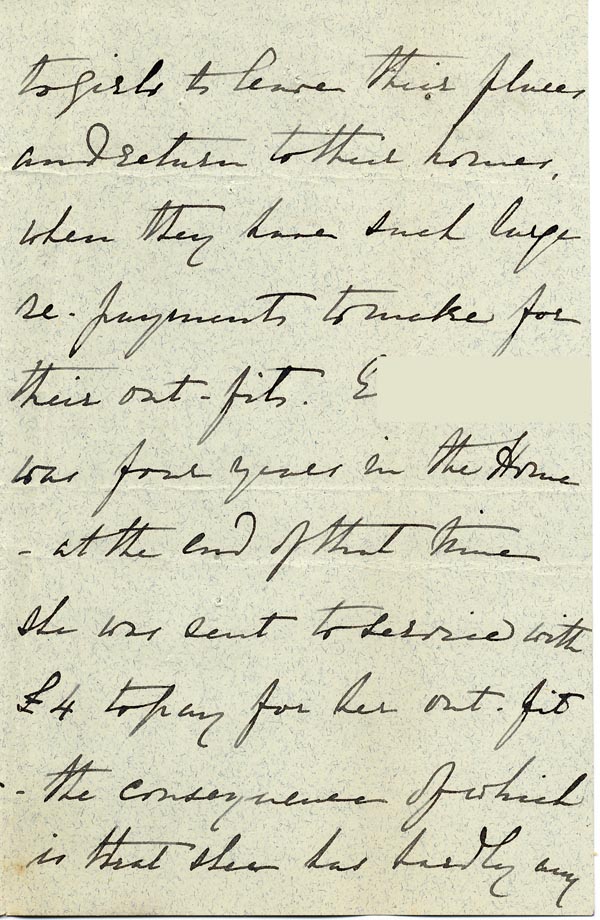 to girls to leave their places
and return to their homes,
when they have such large
re-payments to make for
their out-fits. E
was four years in the Home
- at the end of that time
she was sent to service with
£4 to pay for her out-fit
- the consequence of which
is that she has hardly any